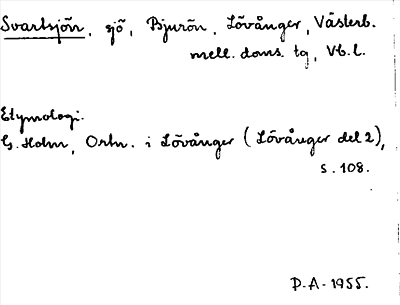 Svartsjön, sjö, Bjurön, Lövånger, Västerb.
mell. doms. tg, Vb. l.
Etymologi.
G. Holm, Ortn. i Lövånger (Lövånger del 2),
s. 108.
P.A. 1955.